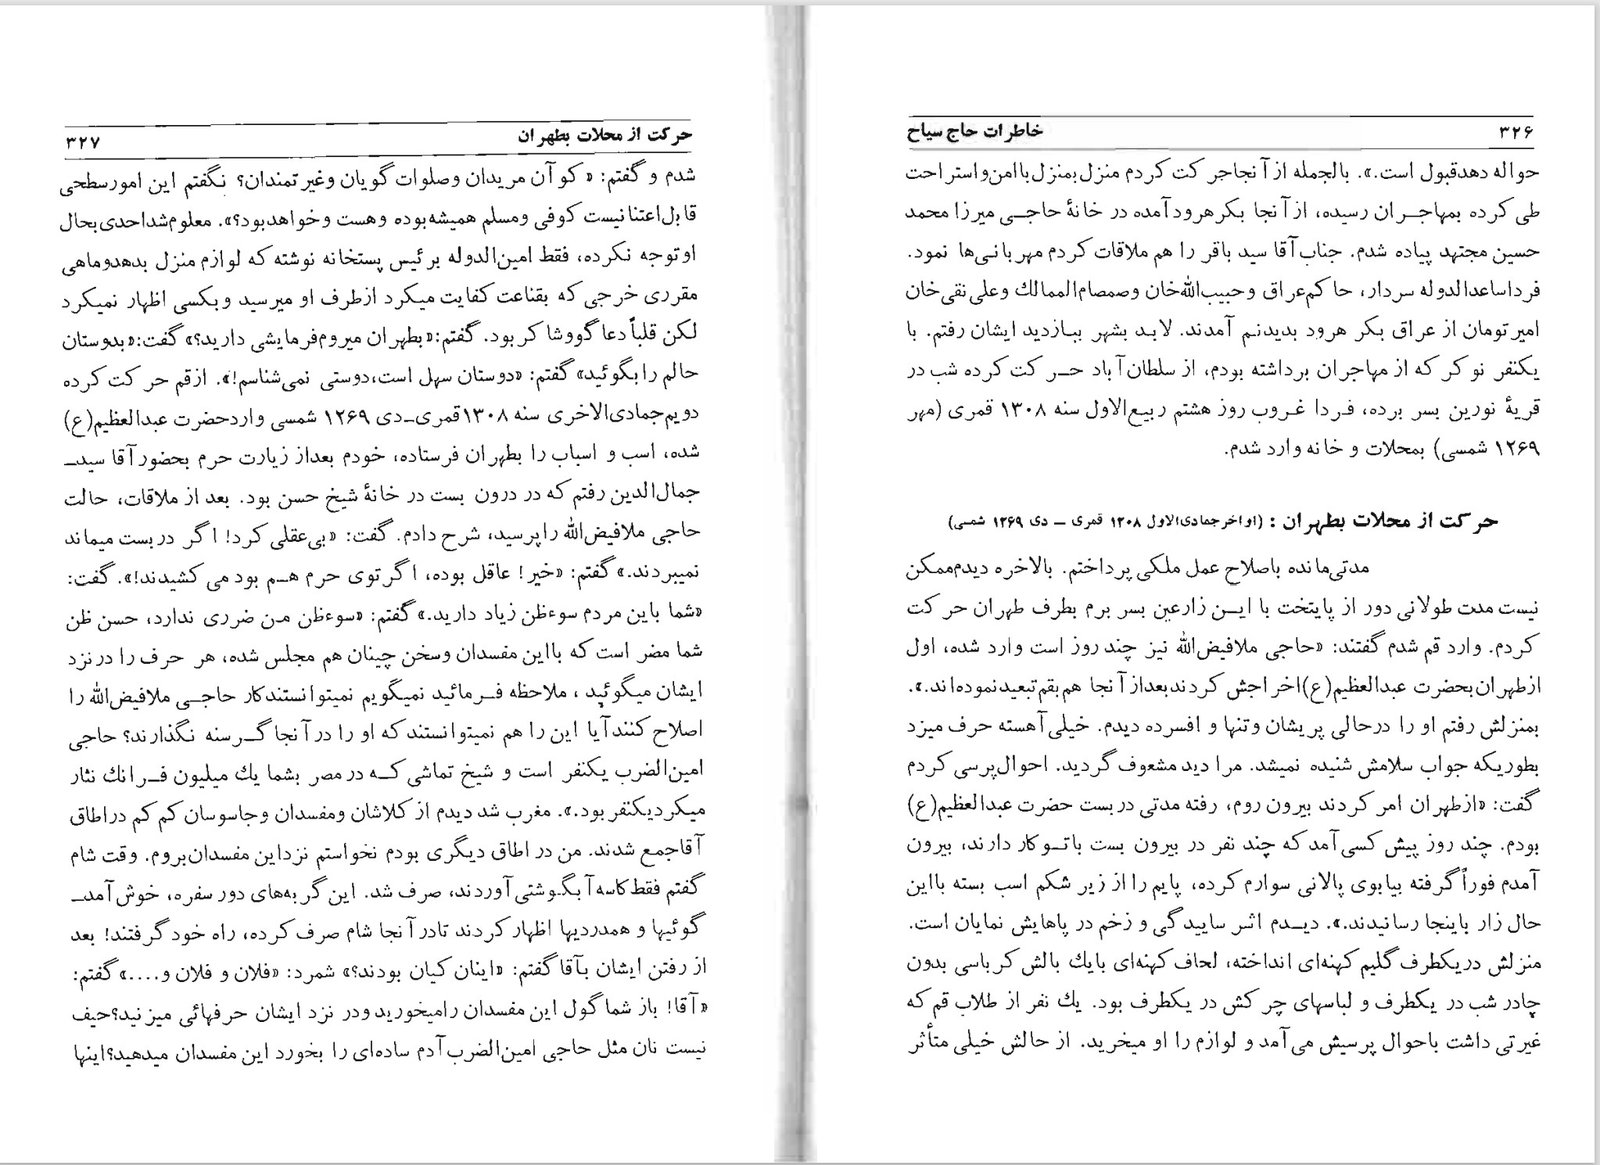 ۳۲۶ خاطرات حاج سیاح
حواله دهد قبول است.». بالجمله از آنجا حرکت کردم منزل بمنزل با امن و استراحت
طی کرده بمهاجران رسیده، از آنجا بکرهرود آمده در خانهٔ حاجی میرزا محمد
حسین مجتهد پیاده شدم. جناب آقا سید باقر را هم ملاقات کردم مهربانی‌ها نمود.
فردا ساعدالدوله سردار، حاکم عراق و حبیب‌الله‌خان و صمصام‌الممالك و علی نقی خان
امیرتومان از عراق بکرهرود بدیدنم آمدند. لابد بشهر ببازدید ایشان رفتم. با
یکنفر نوکر که از مهاجران برداشته بودم، از سلطان‌آباد حرکت کرده شب در
قریهٔ نورین بسر برده، فردا غروب روز هشتم ربیع‌الاول سنه ۱۳۰۸ قمری (مهر
۱۲۶۹ شمسی) بمحلات و خانه وارد شدم.
حرکت از محلات بطهران : (اواخر جمادی‌الاول ۱۳۰۸ قمری – دی ۱۲۶۹ شمسی)
مدتی مانده باصلاح عمل ملکی پرداختم. بالاخره دیدم ممکن
نیست مدت طولانی دور از پایتخت با این زارعین بسر برم بطرف طهران حرکت
کردم. وارد قم شدم گفتند: «حاجی ملافیض‌الله نیز چند روز است وارد شده، اول
از طهران بحضرت عبدالعظیم(ع) اخراجش کردند بعد از آنجا هم بقم تبعید نموده‌اند.».
بمنزلش رفتم او را درحالی پریشان وتنها و افسرده دیدم. خیلی آهسته حرف میزد
بطوریکه جواب سلامش شنیده نمیشد. مرا دید مشعوف گردید. احوال‌پرسی کردم
گفت: «از طهران امر کردند بیرون روم، رفته مدتی در بست حضرت عبدالعظیم(ع)
بودم. چند روز پیش کسی آمد که چند نفر در بیرون بست با تو کار دارند، بیرون
آمدم فوراً گرفته بیابوی پالانی سوارم کرده، پایم را از زیر شکم اسب بسته بااین
حال زار باینجا رسانیدند.». دیدم اثر ساییدگی و زخم در پاهایش نمایان است.
منزلش در یکطرف گلیم کهنه‌ای انداخته، لحاف کهنه‌ای بایك بالش کرباسی بدون
چادر شب در یکطرف و لباسهای چرکش در یکطرف بود. یك نفر از طلاب قم که
غیرتی داشت باحوال پرسیش می‌آمد و لوازم را او میخرید. از حالش خیلی متأثر
حرکت از محلات بطهران ۳۲۷
شدم و گفتم: «کو آن مریدان وصلوات گویان وغیرتمندان؟ نگفتم این امور سطحی
قابل اعتنا نیست کوفی ومسلم همیشه بوده وهست وخواهد بود؟». معلوم شد احدی بحال
او توجه نکرده، فقط امین‌الدوله برئیس پستخانه نوشته که لوازم منزل بدهد وماهی
مقرری خرجی که بقناعت کفایت میکرد ازطرف او میرسید وبکسی اظهار نمیکرد
لکن قلباً دعاگو وشاکر بود. گفتم:«بطهران میروم فرمایشی دارید؟» گفت:«بدوستان
حالم را بگوئید» گفتم: «دوستان سهل است، دوستی نمی‌شناسم!». ازقم حرکت کرده
دویم جمادی‌الاخری سنه ۱۳۰۸ قمری–دی ۱۲۶۹ شمسی وارد حضرت عبدالعظیم(ع)
شده، اسب و اسباب را بطهران فرستاده، خودم بعداز زیارت حرم بحضور آقا سید–
جمال‌الدین رفتم که در درون بست در خانهٔ شیخ حسن بود. بعد از ملاقات، حالت
حاجی ملافیض‌الله را پرسید، شرح دادم. گفت: «بی‌عقلی کرد! اگر در بست میماند
نمیبردند.» گفتم: «خیر! عاقل بوده، اگر توی حرم هم بود می‌کشیدند!». گفت:
«شما باین مردم سوءظن زیاد دارید.» گفتم: «سوءظن من ضرری ندارد، حسن ظن
شما مضر است که بااین مفسدان وسخن چینان هم مجلس شده، هر حرف را در نزد
ایشان میگوئید، ملاحظه فرمائید نمیگویم نمیتوانستند کار حاجی ملافیض‌الله را
اصلاح کنند آیا این را هم نمیتوانستند که او را در آنجا گرسنه نگذارند؟ حاجی
امین‌الضرب یکنفر است و شیخ تماشی که در مصر بشما یك میلیون فرانك نثار
میکرد یکنفر بود.». مغرب شد دیدم از کلاشان ومفسدان وجاسوسان کم کم دراطاق
آقا جمع شدند. من در اطاق دیگری بودم نخواستم نزد این مفسدان بروم. وقت شام
گفتم فقط کاسه آبگوشتی آوردند، صرف شد. این گربه‌های دور سفره، خوش آمد–
گوئیها و همدردیها اظهار کردند تا در آنجا شام صرف کرده، راه خود گرفتند! بعد
از رفتن ایشان بآقا گفتم: «اینان کیان بودند؟» شمرد: «فلان و فلان و....» گفتم:
«آقا! باز شما گول این مفسدان را میخورید ودر نزد ایشان حرفهائی میزنید؟ حیف
نیست نان مثل حاجی امین‌الضرب آدم ساده‌ای را بخورد این مفسدان میدهید؟ اینها